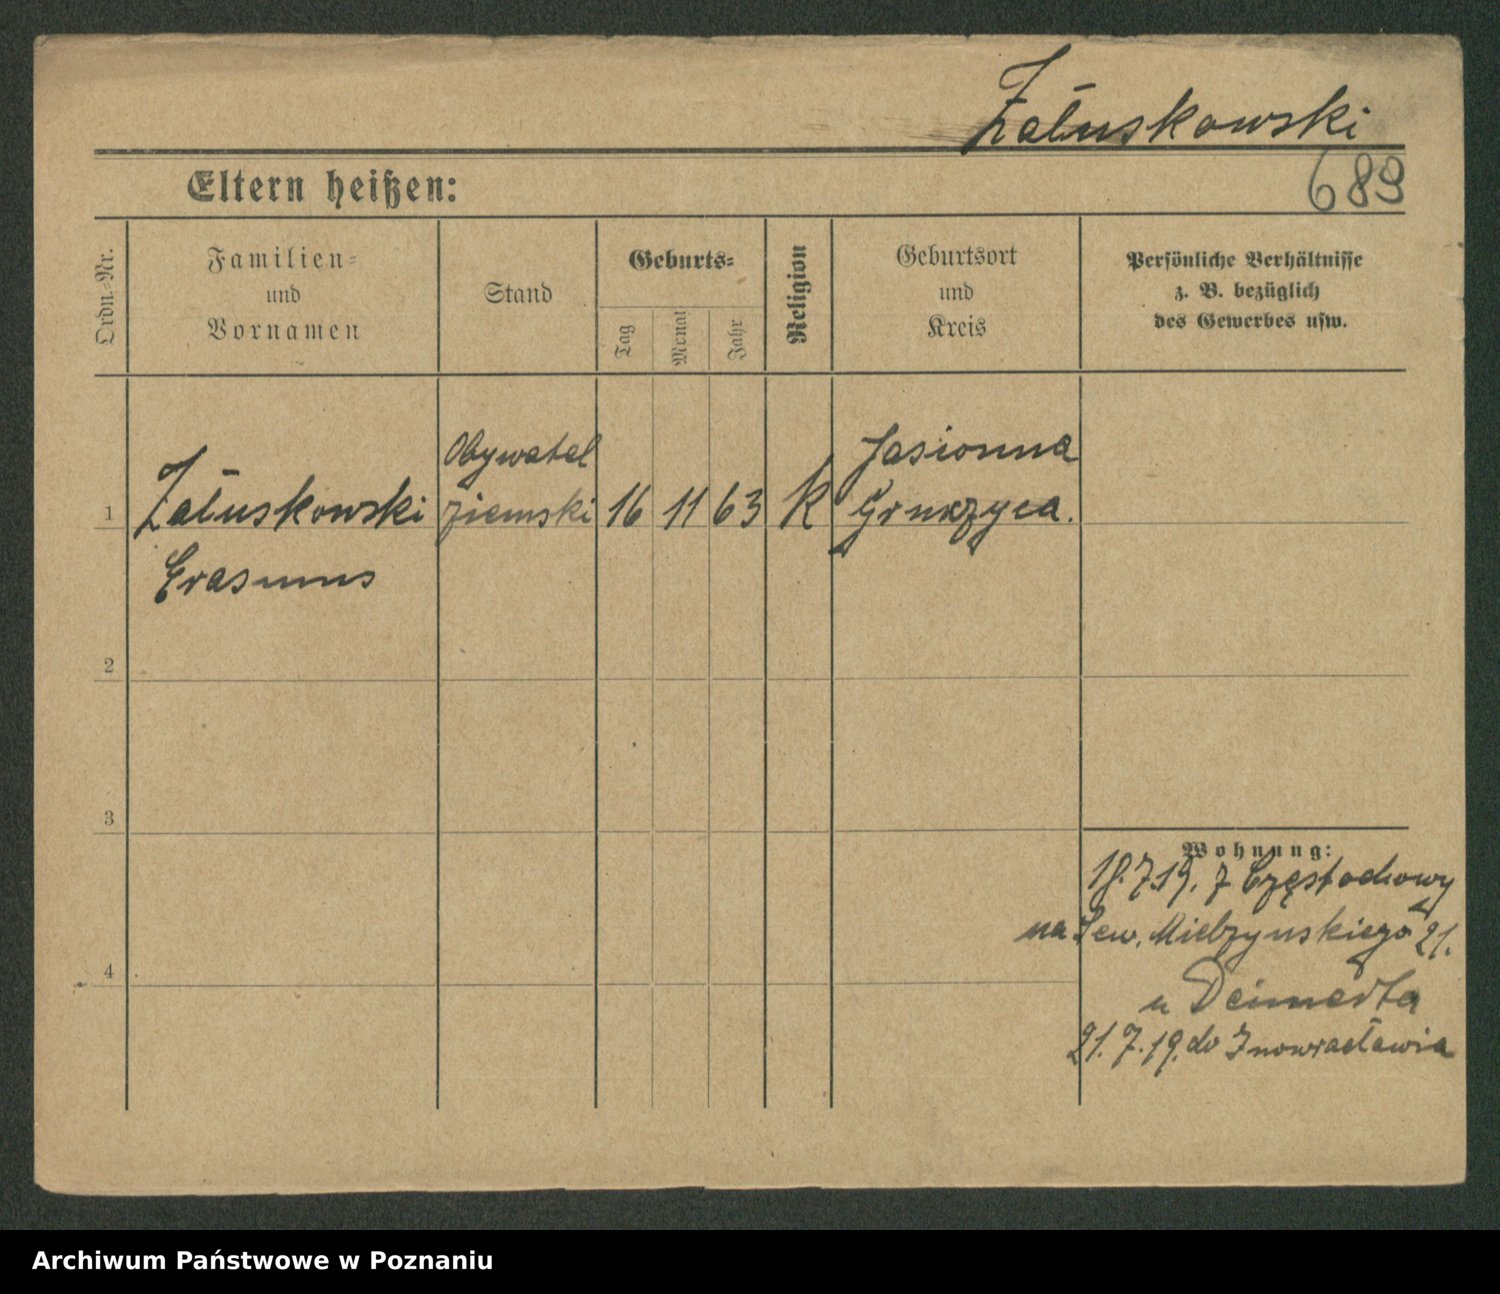 Załuskowski
689
Eltern heißen:
Ordn.-Nr.
Familien-
und
Vornamen
Stand
Geburts-
Tag
Monat
Jahr
Religion
Geburtsort
und
Kreis
Persönliche Verhältnisse
z. B. bezüglich
des Gewerbes usw.
1
Załuskowski
Erasmus
Obywatel
ziemski
16 11 63
K
Jasionna
2
3
4
Wohnung:
18.7.19. z Częstochowy
na Sew. Mielzynskiego 21.
u Deimerta
21.7.19. do Inowracławia
Archiwum Państwowe w Poznaniu